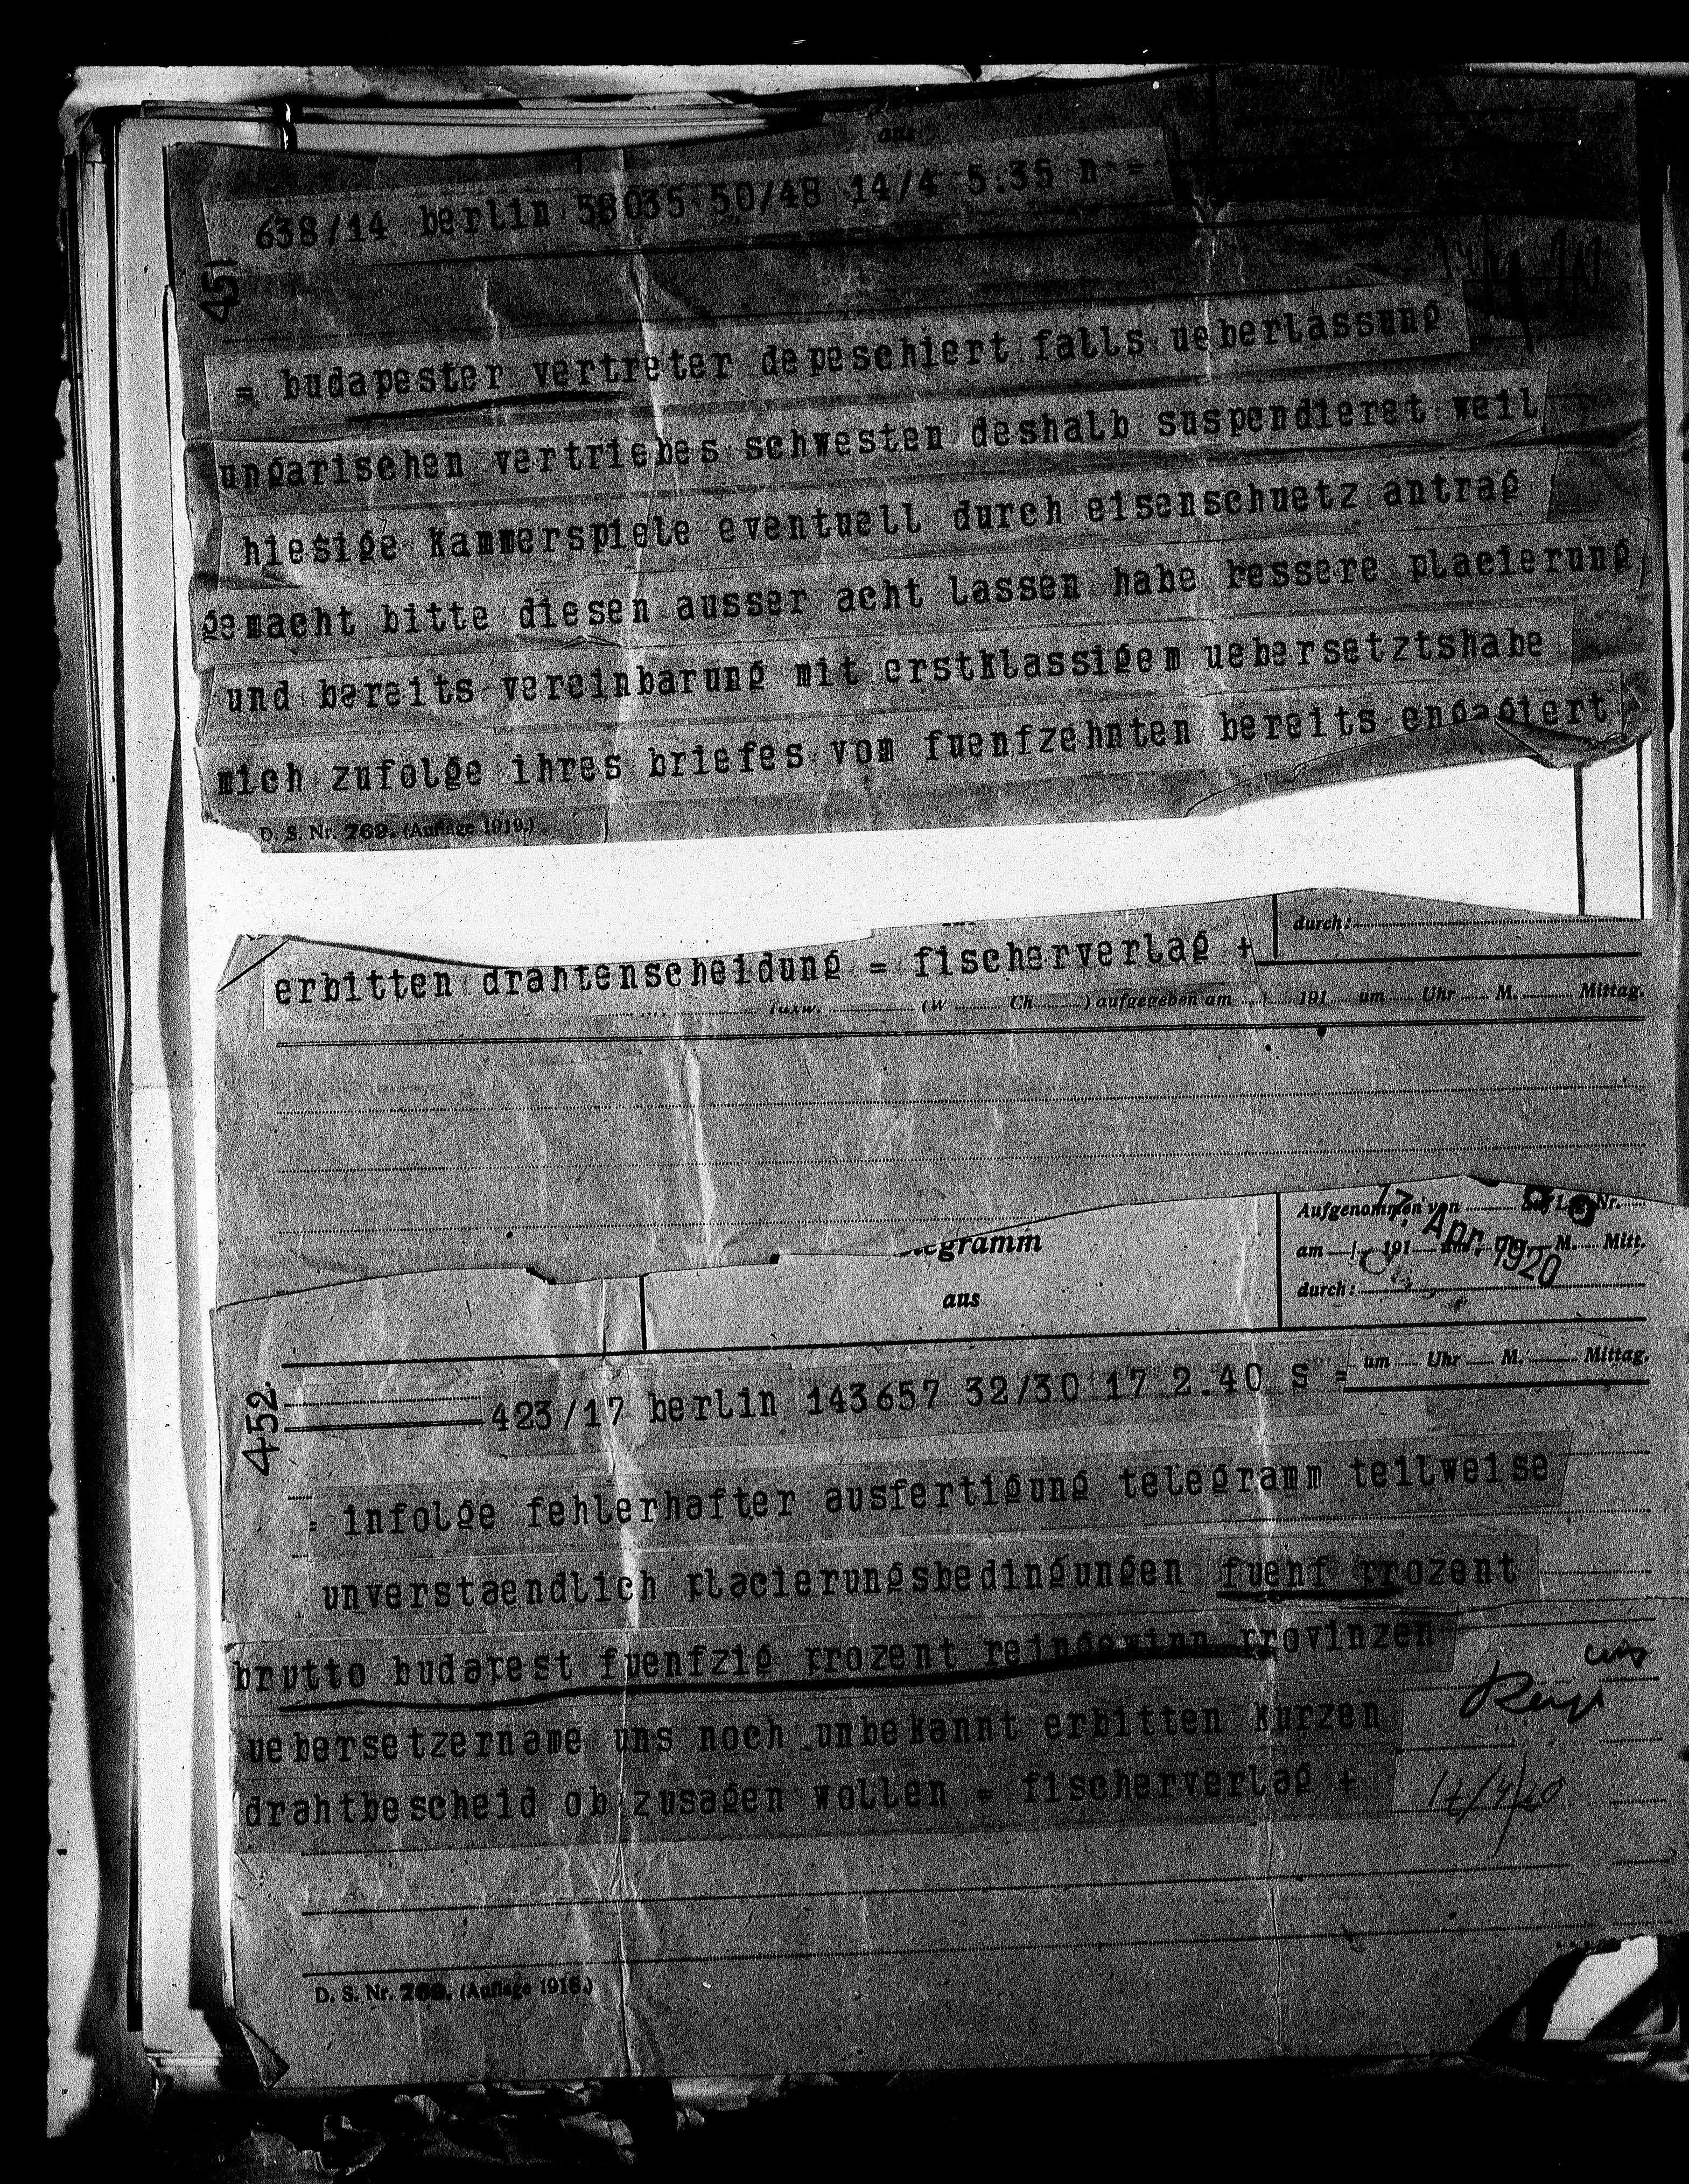 aus
638/14 berlin 58035 50/48 14/4 5.35 n =
451
= budapester vertreter depeschiert falls ueberlassung
ungarischen vertriebes schwesten deshalb suspendieret weil
hiesige kammerspiele eventuell durch eisenschuetz antrag
gemacht bitte diesen ausser acht lassen habe bessere placierung
und bereits vereinbarung mit erstklassigem uebersetztshabe
mich zufolge ihres briefes vom fuenfzehnten bereits engagiert
D. S. Nr. 769. (Auflage 1919.)
durch:
erbitten drahtenscheidung = fischerverlag +
Taxw. (W Ch ) aufgegeben am 191 um Uhr M. Mittag.
Aufgenommen von auf Ltg. Nr.
17. Apr. 1920
egramm
am 191 um Uhr M. Mitt.
aus
durch:
um Uhr M. Mittag.
452.
423/17 berlin 143657 32/30 17 2.40 s =
= infolge fehlerhafter ausfertigung telegramm teilweise
unverstaendlich placierungsbedingungen fuenf prozent
brutto budapest fuenfzig prozent reingewinn provinzen
uebersetzername uns noch unbekannt erbitten kurzen
drahtbescheid ob zusagen wollen = fischerverlag +
17/4/20
D. S. Nr. 769. (Auflage 1916.)